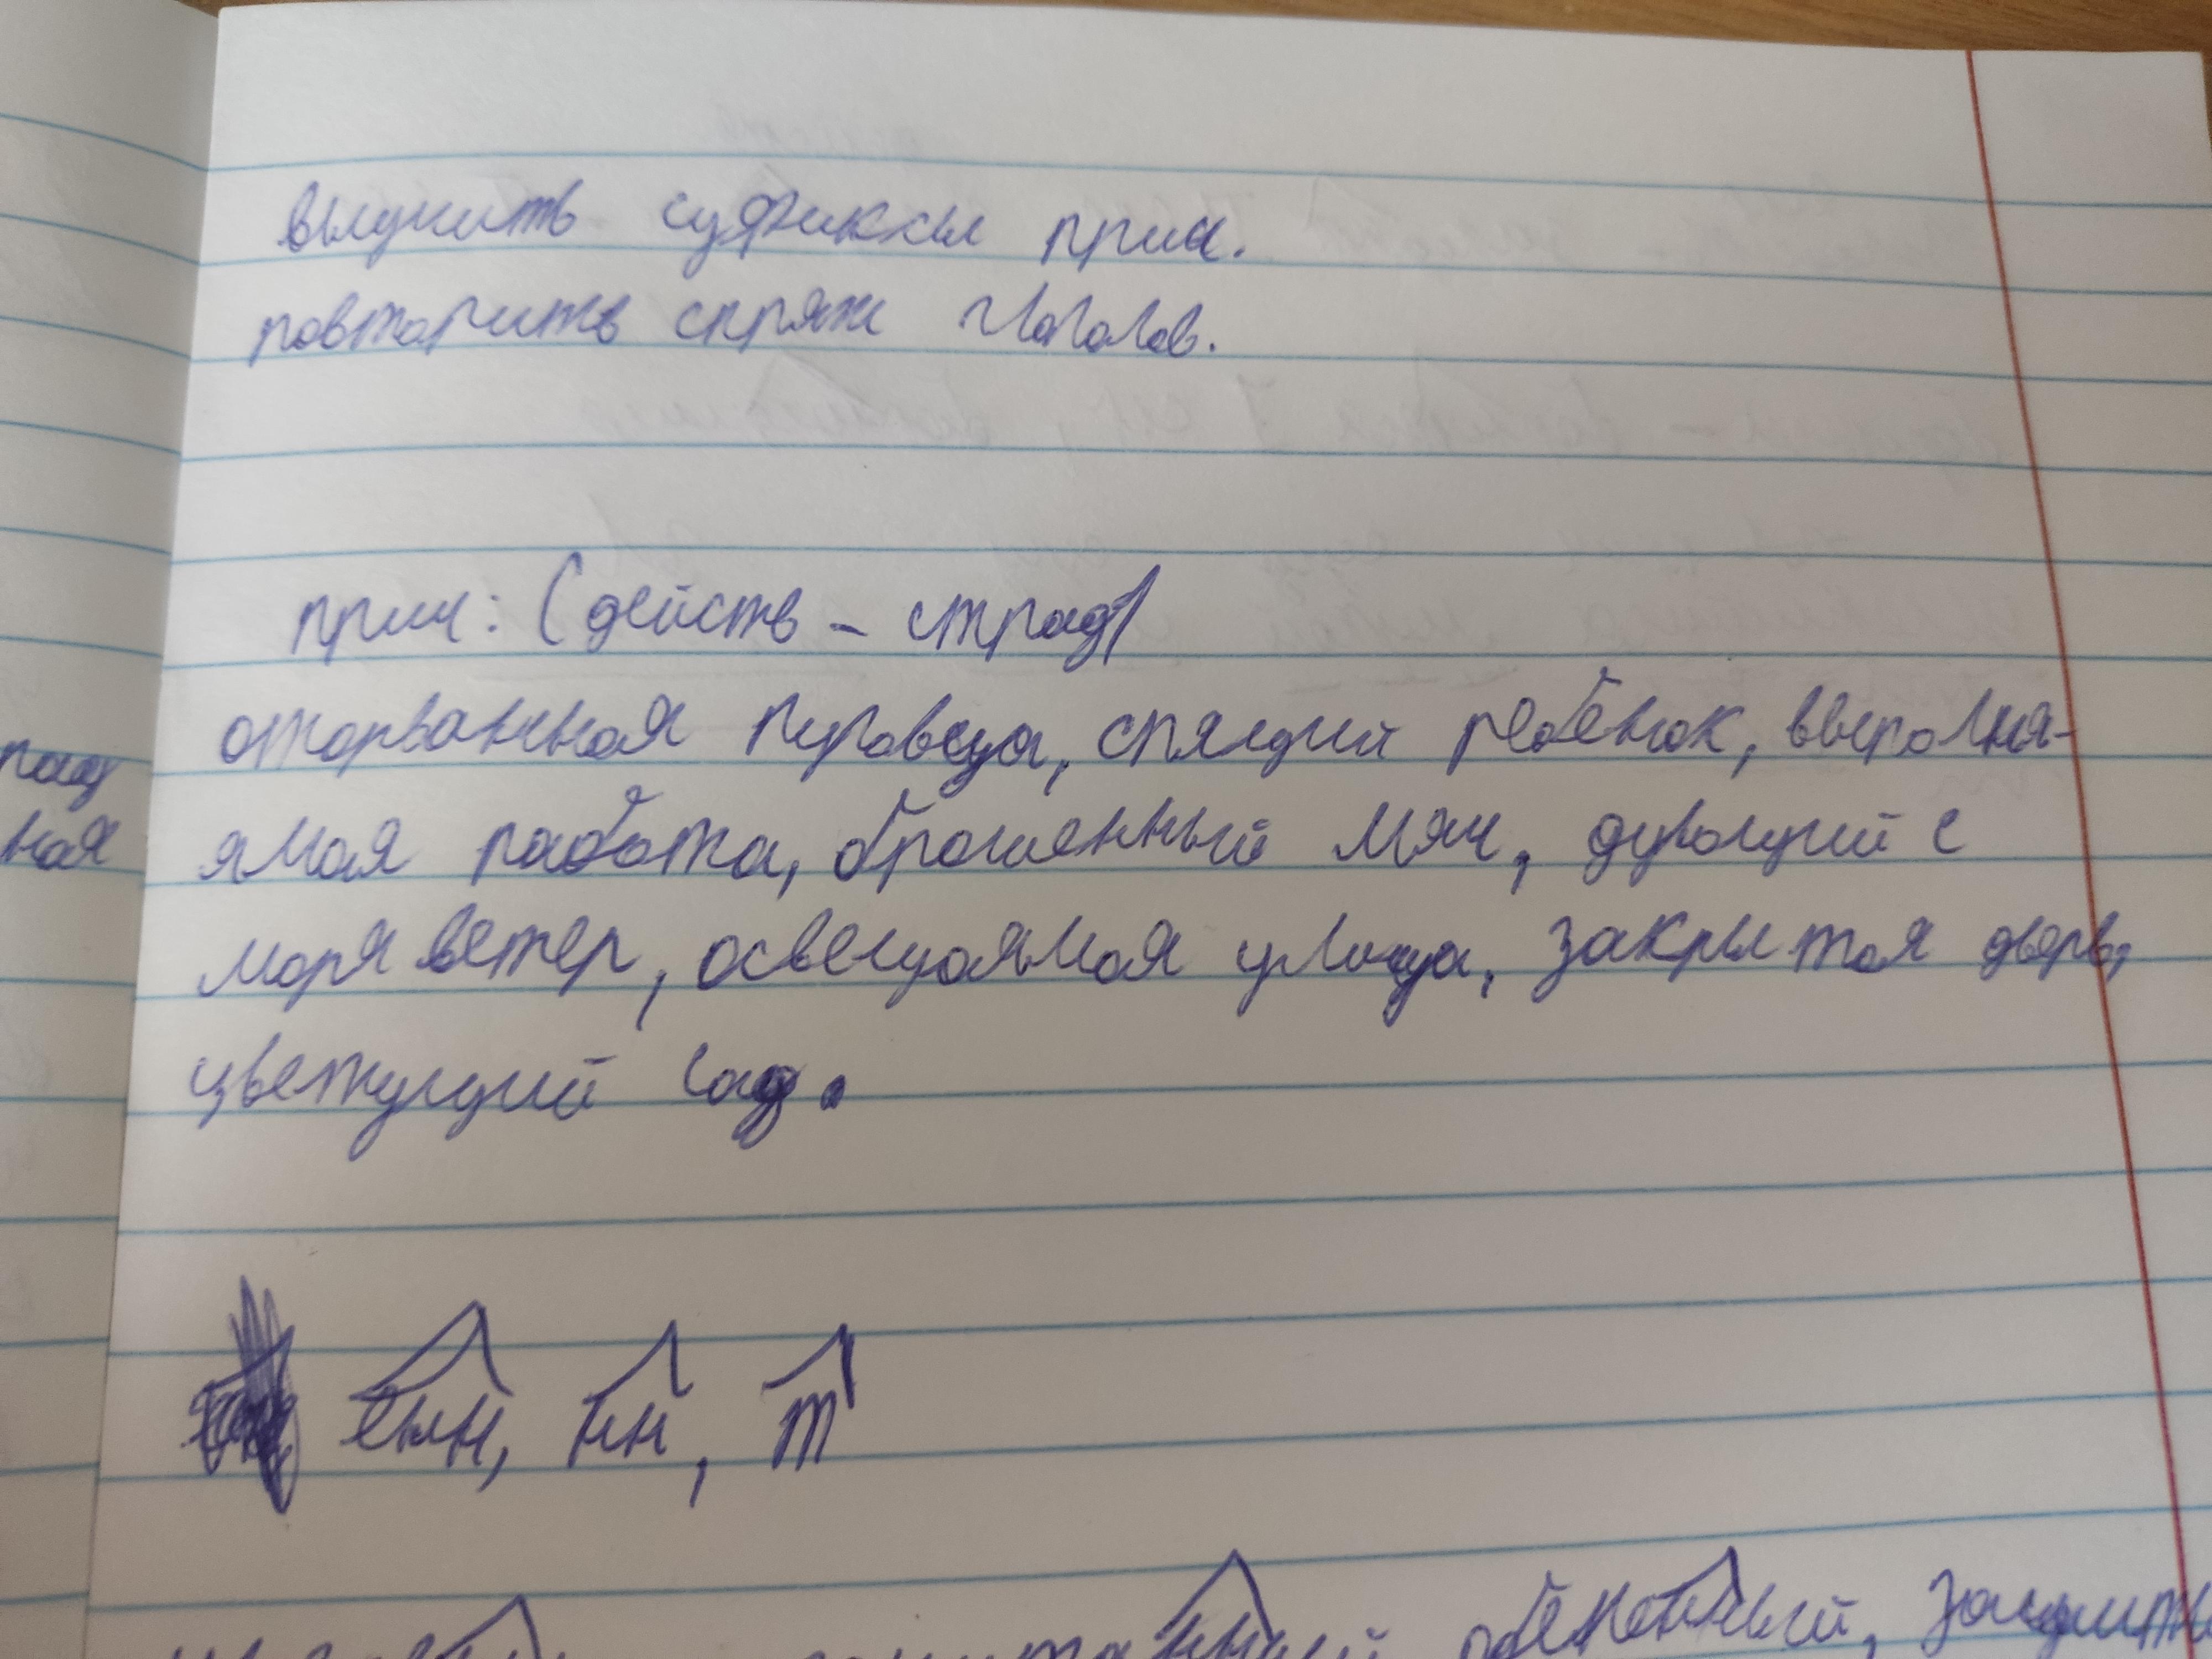 вылучить суфиксы прич.
повторить спряж глаголов.
прич: (действ - страд)
оторванная пуговеца, спящий ребёнок, выполня-
рад
ямая работа, брошенный мяч, дующий с
ная
моря ветер, освещаямая улица, закрытая дверь,
цветущий сад.
енн, нн, т